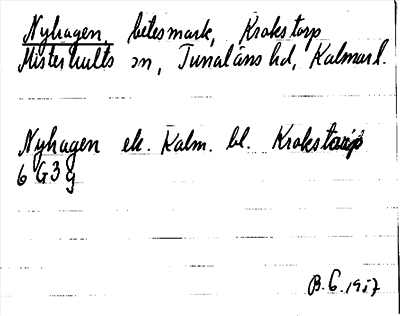 Nyhagen, betesmark, Krokstorp
Misterhults sn, Tunaläns hd, Kalmar l.
Nyhagen ek. Kalm. bl. Krokstorp
6 G 3 g
B. G. 1957